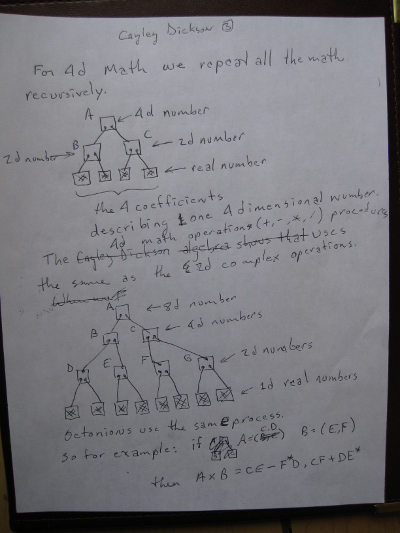 Cayley Dickson ③
For 4d Math we repeat all the math
recursively.
A 4d number
B C 2d number
2d number
real number
the 4 coefficients
describing one 4 dimensional number.
4d math operations (+,-,*,/) procedures
The Cayley Dickson algebra shows that uses
the same as the 2d complex operations.
A 8d number
B C 4d numbers
D E F G 2d numbers
1d real numbers
Octonions use the same process.
So for example: if A=(C,D) B=(E,F)
then A×B = CE-F*D, CF+DE*